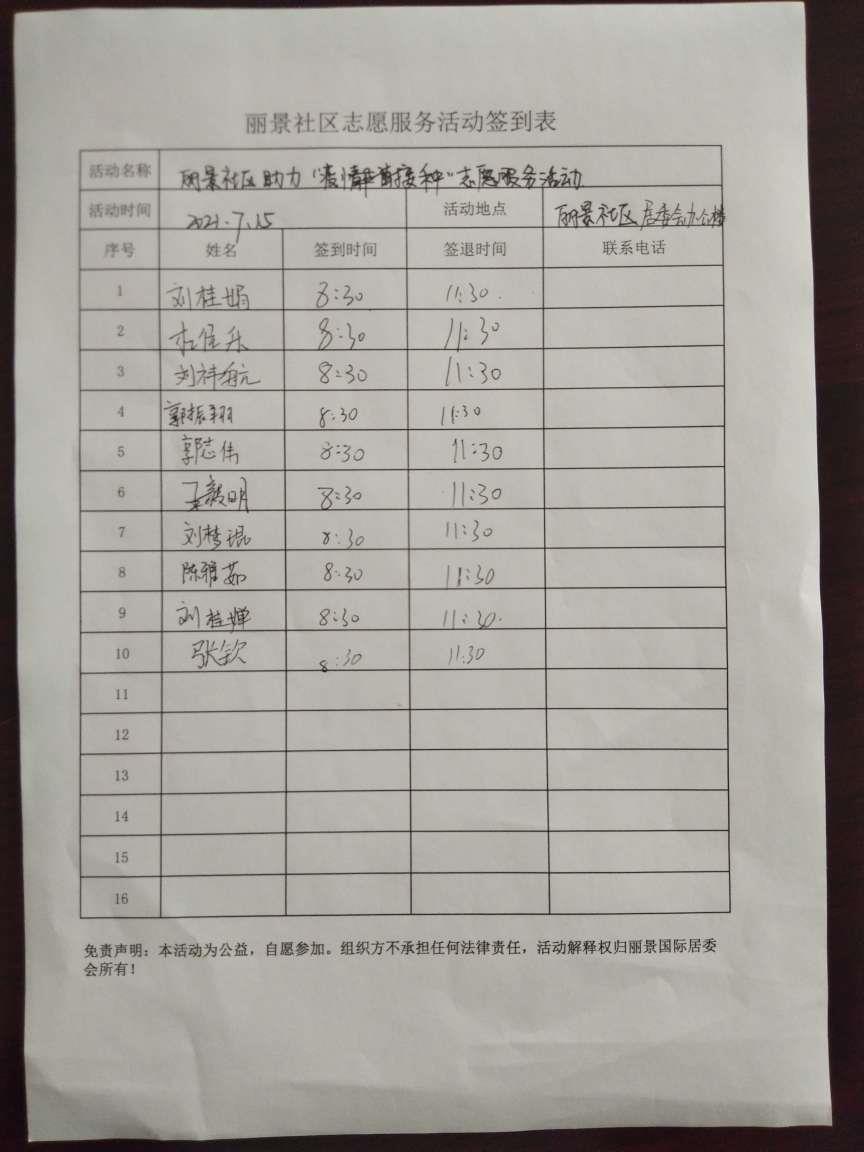 丽景社区志愿服务活动签到表
活动名称 丽景社区助力"疫情 接种"志愿服务活动
活动时间 2021.7.15 活动地点 丽景社区居委会办公楼
序号 姓名 签到时间 签退时间 联系电话
1 刘桂娟 8:30 11:30
2 杜佳乐 8:30 11:30
3 刘祥航 8:30 11:30
4 郭振翔 8:30 11:30
5 郭志伟 8:30 11:30
6 孟毅明 8:30 11:30
7 刘梦琨 8:30 11:30
8 陈雅茹 8:30 11:30
9 刘桂婵 8:30 11:30
10 张钦 8:30 11:30
11
12
13
14
15
16
免责声明：本活动为公益，自愿参加。组织方不承担任何法律责任，活动解释权归丽景国际居委
会所有！